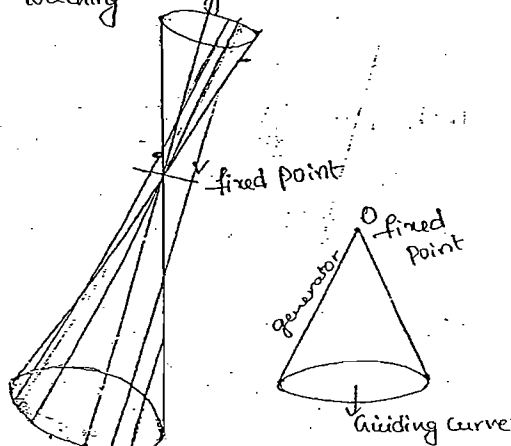 fixed point
O fixed
point
generator
Guiding curve